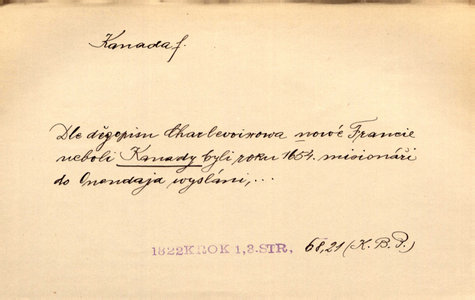 Kanada f.
Dle děgopisu Charlevoixowa nowé Francie
neboli Kanady byli roku 1654. misionáři
do Onendaja wysláni,...
1822 KROK 1,3.STR. 68,21 (K. B. P.)